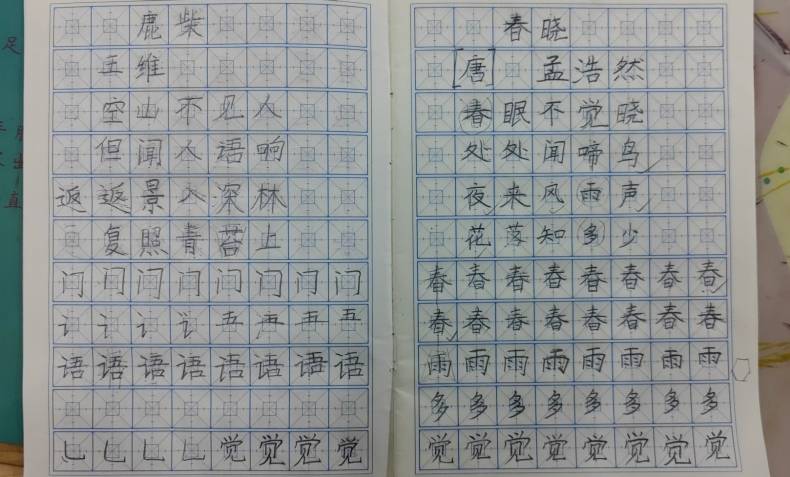 鹿柴
王维
空山不见人
但闻人语响
返返景入深林
复照青苔上
门门门门门门门门
讠讠讠讠五五五五
语语语语语语语语
乚乚乚乚觉觉觉觉
春晓
[唐] 孟浩然
春眠不觉晓
处处闻啼鸟
夜来风雨声
花落知多少
春春春春春春春春
春春春春春春春春
雨雨雨雨雨雨雨雨
多多多多多多多多
觉觉觉觉觉觉觉觉
足